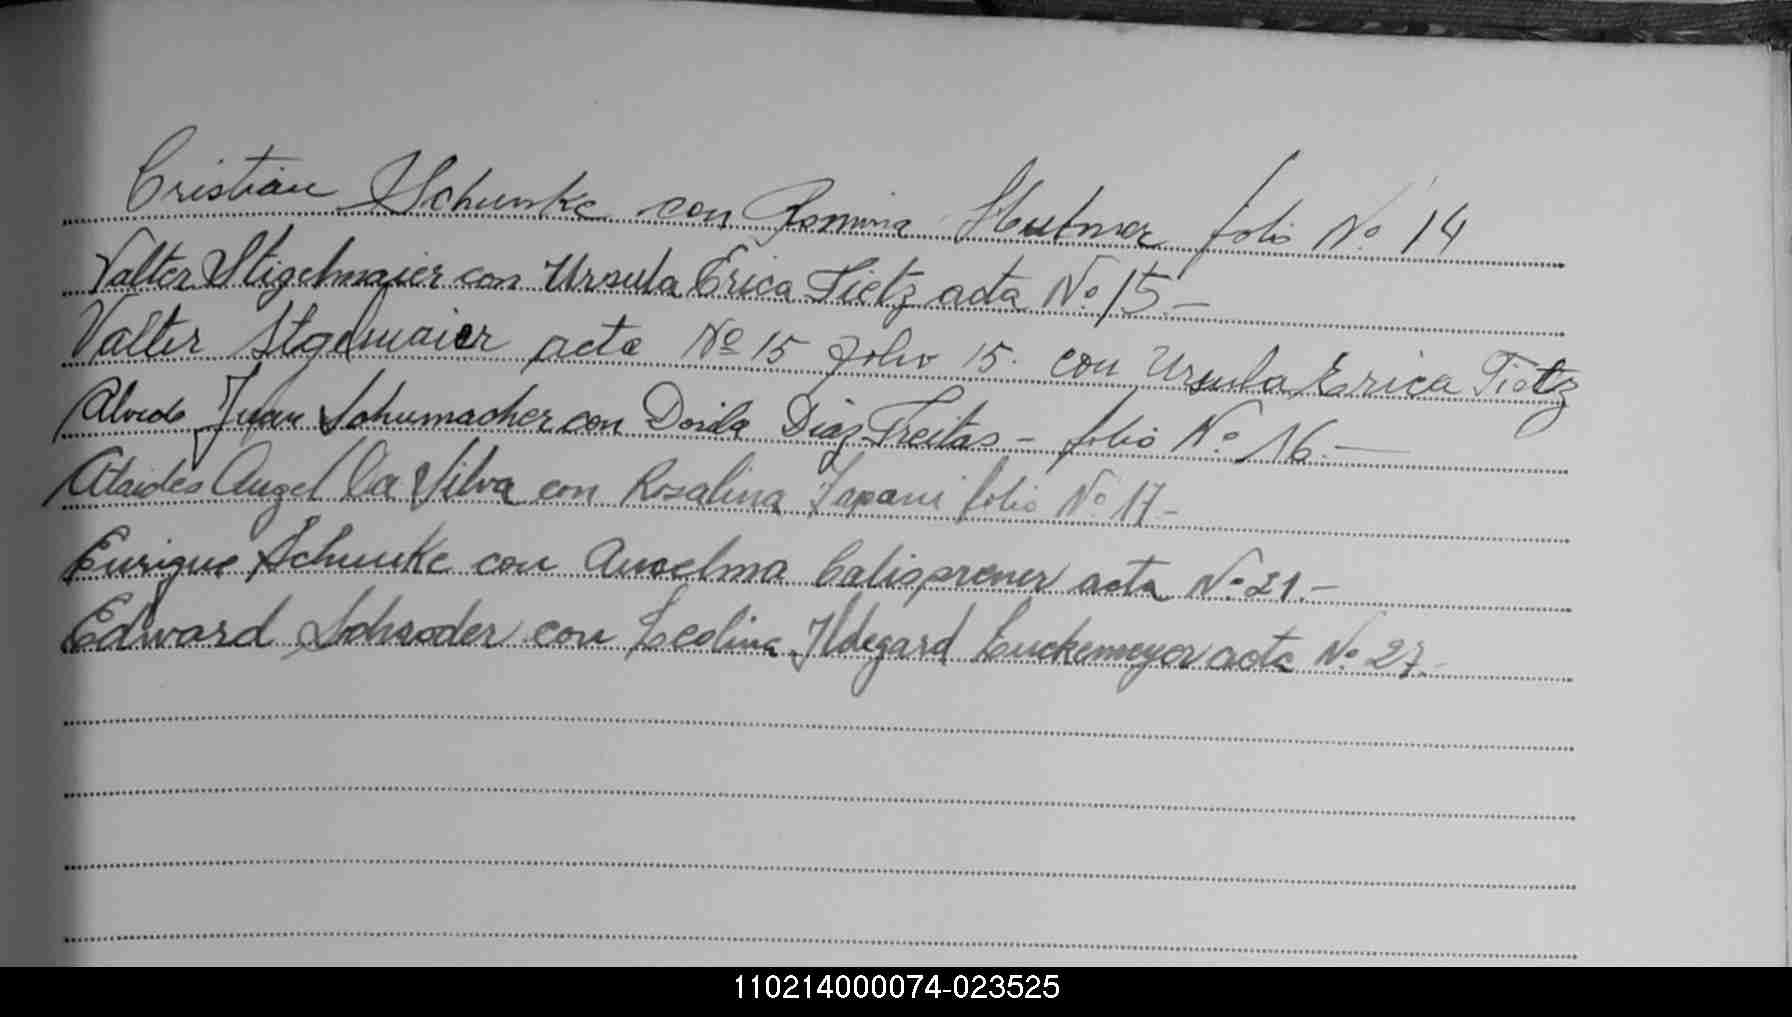 Cristian Schunke con Romina Hutmer folio Nº 14
Valter Stigelmaier con Ursula Erica Tietz acta Nº 15.-
Valter Stgelmaier acta Nº 15 folio 15. con Ursula Erica Tietz
Alvido Juan Schumacher con Dorila Diaz Freitas - folio Nº 16.-
Ataides Angel Da Silva con Rosalina Sapani folio Nº 17-
Enrique Schunke con Anselma Calisprener acta Nº 21.-
Edward Schroder con Leolina Ildegard Luckemeyer acta Nº 27.-
110214000074-023525